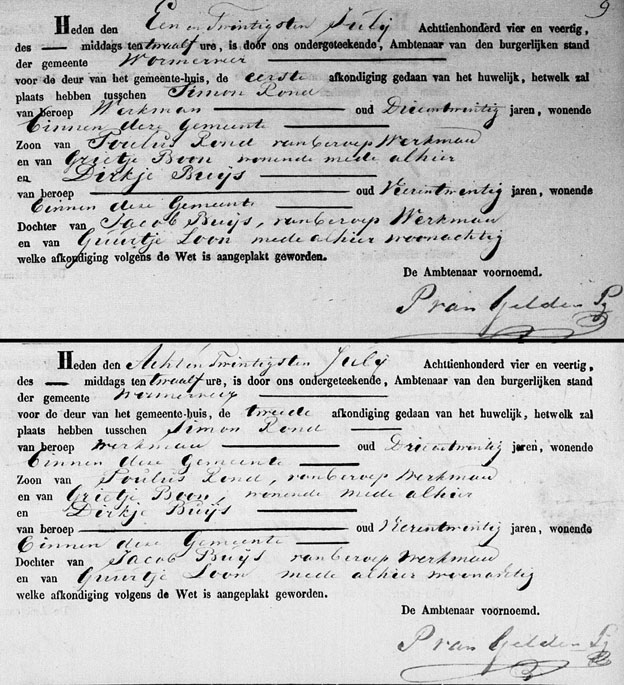 9
Heden den Een en Twintigsten July Achttienhonderd vier en veertig,
des — middags ten twaalf ure, is door ons ondergeteekende, Ambtenaar van den burgerlijken stand
der gemeente Wormerveer
voor de deur van het gemeente-huis, de eerste afkondiging gedaan van het huwelijk, hetwelk zal
plaats hebben tusschen Simon Rond
van beroep Werkman oud Drieentwintig jaren, wonende
binnen deze Gemeente
Zoon van Paulus Rond van beroep Werkman
en van Grietje Boon wonende mede alhier
en Dirkje Buijs
van beroep — oud Vierentwintig jaren, wonende
binnen deze Gemeente
Dochter van Jacob Buijs, van beroep Werkman
en van Guurtje Loon mede alhier woonachtig
welke afkondiging volgens de Wet is aangeplakt geworden.
De Ambtenaar voornoemd.
P van Gelder Pz
Heden den Acht en Twintigsten July Achttienhonderd vier en veertig,
des — middags ten twaalf ure, is door ons ondergeteekende, Ambtenaar van den burgerlijken stand
der gemeente Wormerveer
voor de deur van het gemeente-huis, de tweede afkondiging gedaan van het huwelijk, hetwelk zal
plaats hebben tusschen Simon Rond
van beroep Werkman oud Drieentwintig jaren, wonende
binnen deze Gemeente
Zoon van Paulus Rond, van beroep Werkman
en van Grietje Boon, wonende mede alhier
en Dirkje Buijs
van beroep — oud Vierentwintig jaren, wonende
binnen deze Gemeente
Dochter van Jacob Buijs van beroep Werkman
en van Guurtje Loon mede alhier woonachtig
welke afkondiging volgens de Wet is aangeplakt geworden.
De Ambtenaar voornoemd.
P van Gelder Pz